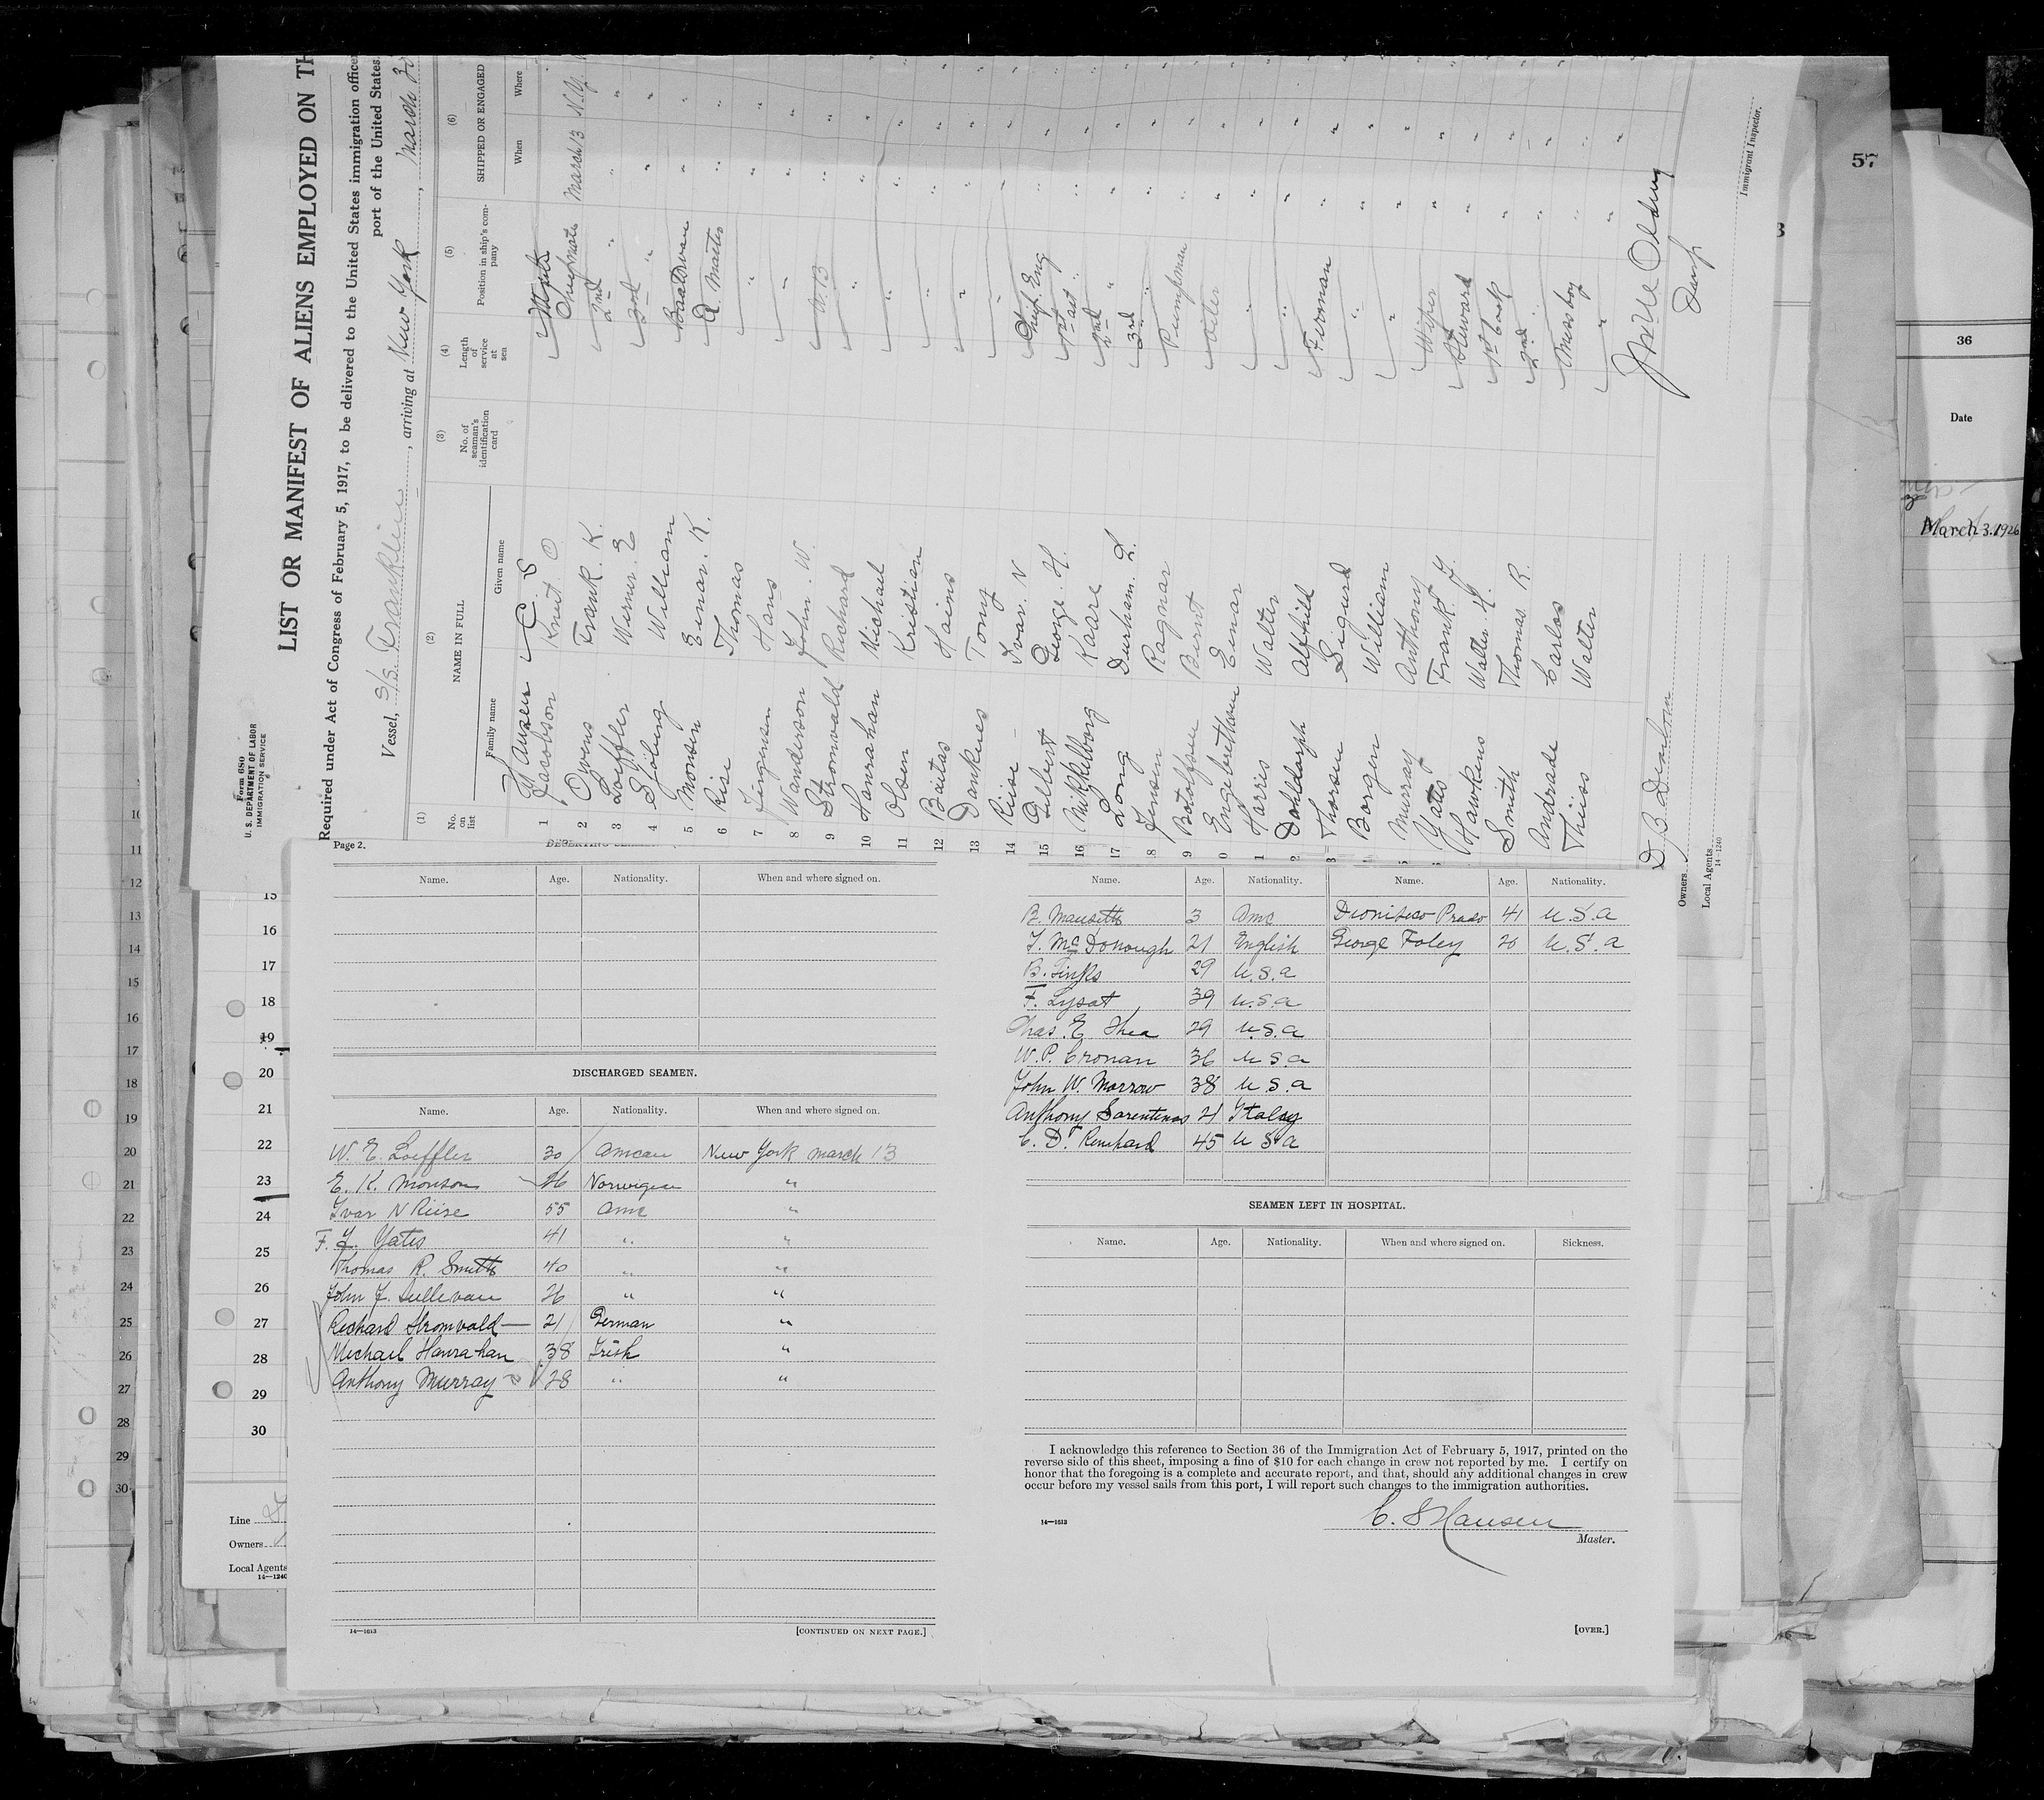 Form 680
U. S. DEPARTMENT OF LABOR
IMMIGRATION SERVICE
LIST OR MANIFEST OF ALIENS EMPLOYED ON TH
Required under Act of Congress of February 5, 1917, to be delivered to the United States immigration officer
port of the United States.
Vessel, S/S Franklin, arriving at New York, March 30
(1) (2) (3) (4) (5) (6)
No. on list NAME IN FULL No. of seaman's identification card Length of service at sea Position in ship's company SHIPPED OR ENGAGED
Family name Given name When Where
Hansen C. S
1 Jacobson Knut O Chief mate March 13 N.Y.
2 Owens Frank. K. 2nd "
3 Loeffler Werner. E 3rd "
4 William
5 Monsen Einar. K.
6 Riise Thomas "
7 Hans "
8 Wanderson John. W. "
9 Stromvald Richard
10 Hanrahan Michael "
11 Olsen Kristian "
12 Baitas Hains "
13 Dankues Tony "
14 Riise Ivar. N "
15 Gilbert George. H. Chief. Eng
16 Mikkelborg Kaare 1st ast
17 Long Durham. L. 2nd "
18 Jensen Ragnar 3rd "
9 Botolfsen Bernt Pumpman
0 Engebrethsen Einar Oiler
1 Harris Walter "
2 Dahldorph Alfhild "
3 Thorsen Sigurd Fireman
Borgen William "
5 Murray Anthony "
Yates Frank Y. Wiper
Hawkins Walter H. Steward
Smith Thomas R. 1st Cook
Andrade Carlos 2nd "
Thiiss Walter Mess boy
Immigrant Inspector.
Owners
Local Agents
14-1240
57
36
Date
March 3. 1926
Page 2.
Name. Age. Nationality. When and where signed on.
DISCHARGED SEAMEN.
Name. Age. Nationality. When and where signed on.
W. E. Loeffler 30 Amcan New York march 13
E. K. Monson 26 Norwigian "
Ivar N Riise 55 Amc "
F. Y. Yates 41 " "
Thomas R. Smith 40 " "
John J. Sullevan 26 " "
Richard Stromvald 21 German "
Michael Hanrahan 38 Irish "
Anthony Murray 28 " "
14—1613
[CONTINUED ON NEXT PAGE.]
Name. Age. Nationality. Name. Age. Nationality.
B. Mauseth 3 Amc Dioniseco Prado 41 U.S.A
T. McDonough 21 English George Foley 20 U.S.A
B. Finks 29 U.S.A
F. Lysat 39 U.S.A
Chas. E. Shea 29 U.S.A
W. P. Cronan 36 U S A
John W. Morrow 38 U.S.A
Anthony Sarentinos 21 Italey
C. D. Reinhard 45 U S A
SEAMEN LEFT IN HOSPITAL.
Name. Age. Nationality. When and where signed on. Sickness.
I acknowledge this reference to Section 36 of the Immigration Act of February 5, 1917, printed on the
reverse side of this sheet, imposing a fine of $10 for each change in crew not reported by me. I certify on
honor that the foregoing is a complete and accurate report, and that, should any additional changes in crew
occur before my vessel sails from this port, I will report such changes to the immigration authorities.
C. S Hansen
Master.
14—1613
[OVER.]
10
11
12
13
14
15
16
17
18
19
20
21
22
23
24
25
26
27
28
29
30
15
16
17
18
19
20
21
22
23
24
25
26
27
28
29
30
Line
Owners
Local Agents
14—1240